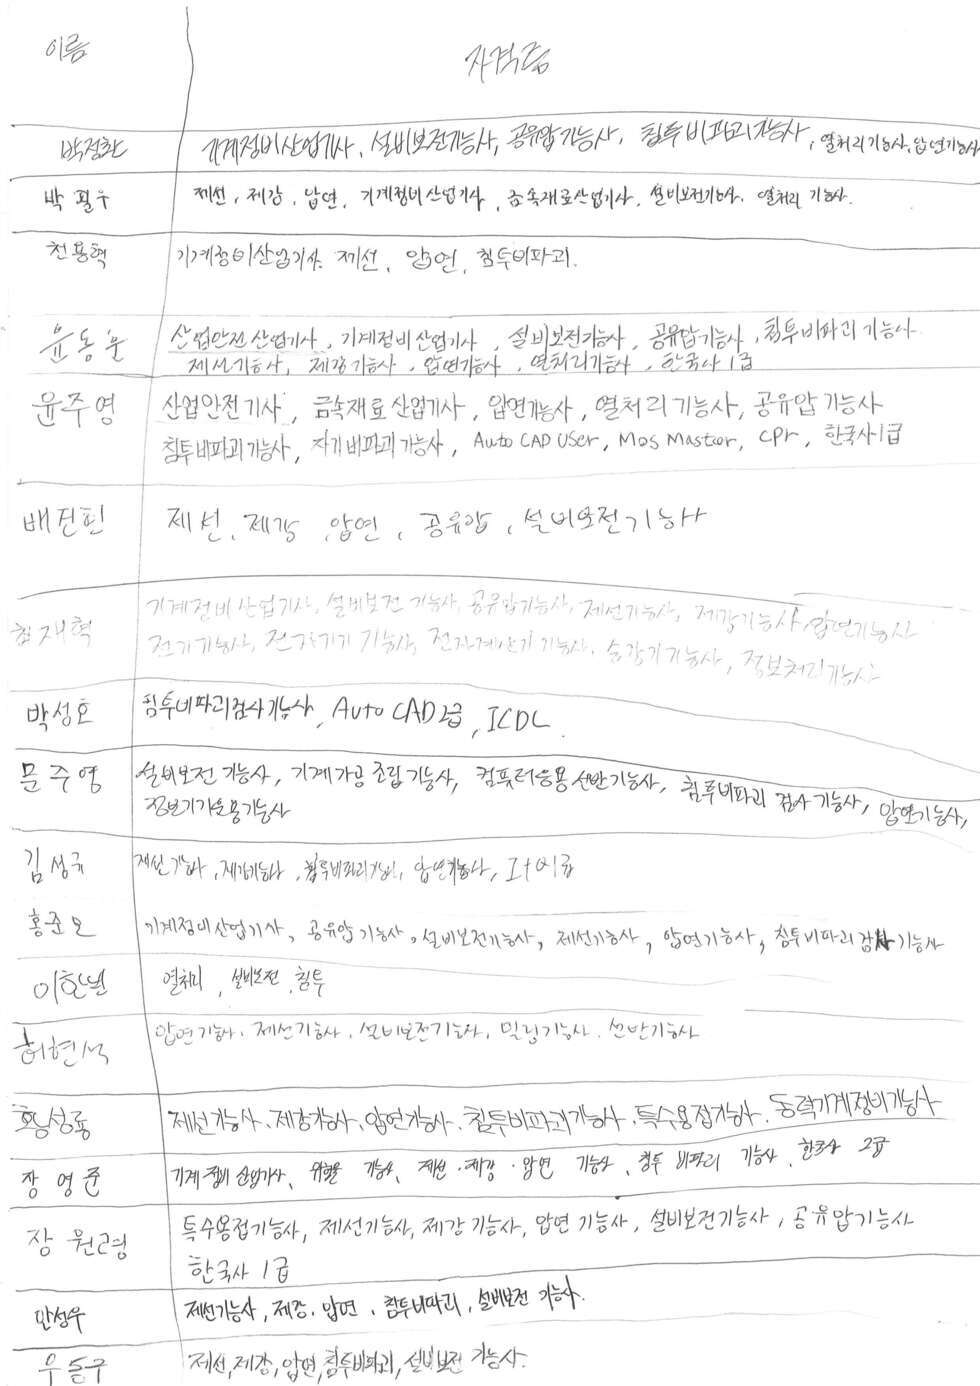 이름 자격증
박정환 기계정비산업기사, 설비보전기능사, 공유압기능사, 침투비파괴기능사, 열처리기능사, 압연기능사
박필수 제선, 제강, 압연, 기계정비산업기사, 금속재료산업기사, 설비보전기능사, 열처리 기능사.
천용혁 기계정비산업기사. 제선, 압연, 침투비파괴.
윤동운 산업안전산업기사, 기계정비산업기사, 설비보전기능사, 공유압기능사, 침투비파괴기능사
제선기능사, 제강기능사, 압연기능사, 열처리기능사, 한국사1급
윤주영 산업안전기사, 금속재료산업기사, 압연기능사, 열처리기능사, 공유압기능사
침투비파괴기능사, 자기비파괴기능사, Auto CAD User, Mos Master, CPr, 한국사1급
배진현 제선, 제강, 압연, 공유압, 설비보전기능사
재혁 기계정비산업기사, 설비보전 기능사, 공유압기능사, 제선기능사, 제강기능사, 압연기능사
전기기능사, 전자기기 기능사, 전자계산기 기능사, 승강기기능사, 정보처리기능사
박성호 침투비파괴검사기능사, Auto CAD 2급, ICDL
문주영 설비보전기능사, 기계가공조립기능사, 컴퓨터응용선반기능사, 침투비파괴 검사기능사, 압연기능사,
정보기기운용기능사
김성규 제선기능사, 제강기능사, 침투비파괴기능사, 압연기능사,
홍준모 기계정비산업기사, 공유압기능사, 설비보전기능사, 제선기능사, 압연기능사, 침투비파괴검사기능사
이한별 열처리, 설비보전, 침투
허현석 압연기능사. 제선기능사. 설비보전기능사, 밀링기능사. 선반기능사
황성룡 제선기능사. 제강기능사. 압연기능사. 침투비파괴기능사. 특수용접기능사. 동력기계정비기능사
장영준 기계정비 산업기사, 위험물 기능사, 제선·제강·압연 기능사, 침투 비파괴 기능사, 한국사 2급
장원영 특수용접기능사, 제선기능사, 제강기능사, 압연기능사, 설비보전기능사, 공유압기능사
한국사 1급
안성우 제선기능사, 제강, 압연, 침투비파괴, 설비보전 기능사.
우돌구 제선, 제강, 압연, 침투비파괴, 설비보전 기능사.